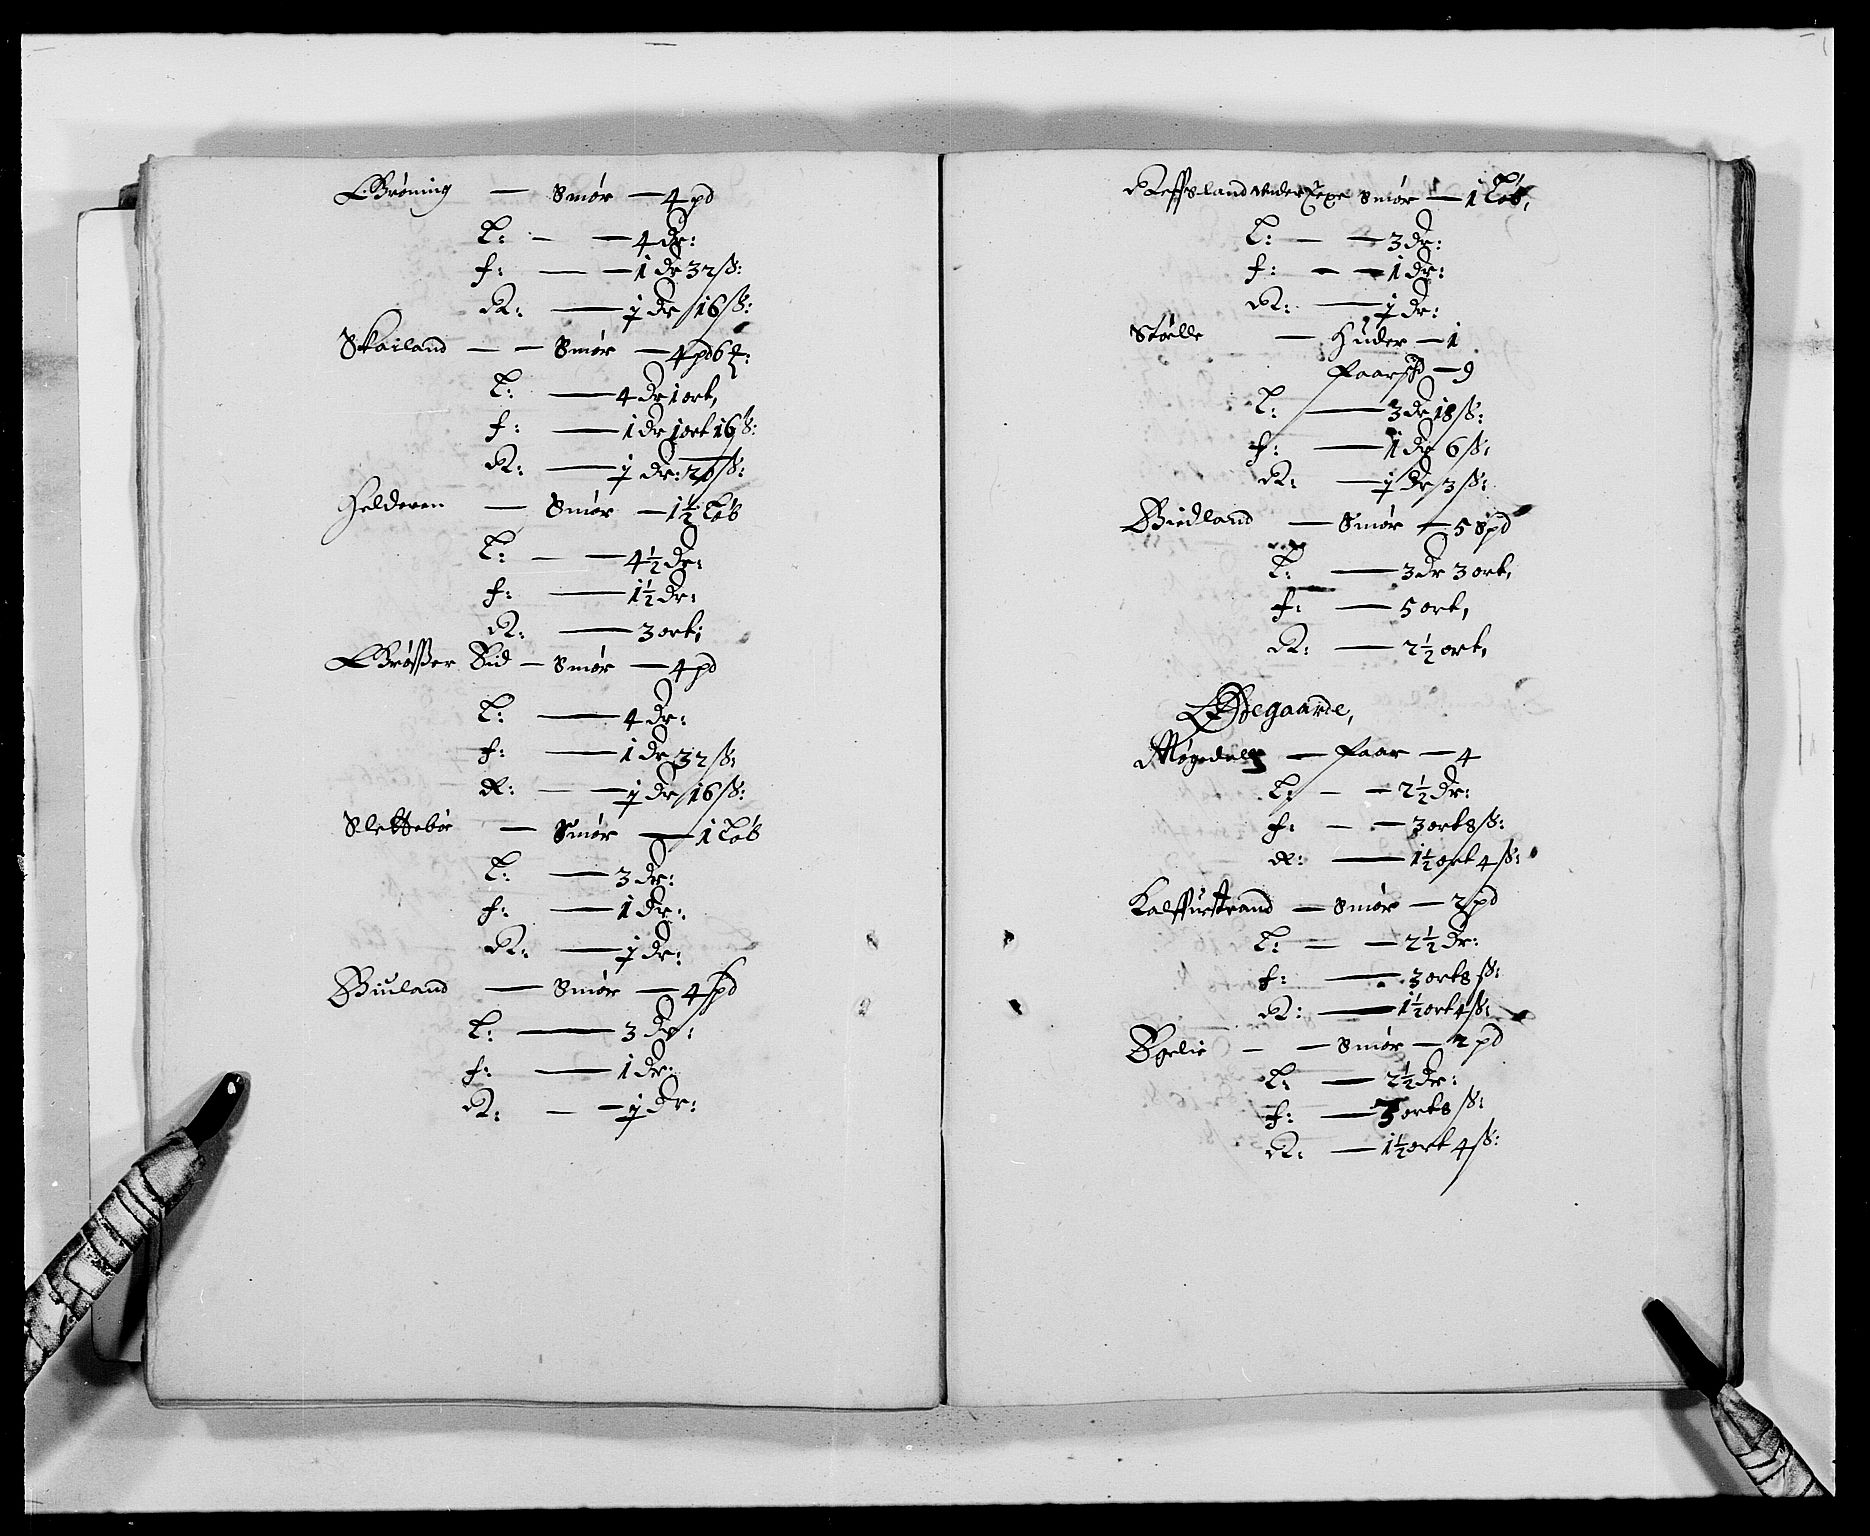 Grøning — Smør — 4 pd
L: — — 4 dr:
f: — — 1 dr 32 ß:
R: — ½ dr 16 ß:
Skailand — — Smør — 4 pd 6
L: — 4 dr 1 ort,
f: — 1 dr 1 ort 16 ß:
R: — ½ dr: 20 ß:
Helderen — Smør — 1½ Løb
L: — — 4½ dr:
f: — 1½ dr:
R: — 3 ort;
Grøsßer Lid — Smør — 4 pd
L: — 4 dr:
f: — 1 dr 32 ß:
R: — — ½ dr 16 ß:
Slettebøe — Smør — 1 Løb
L: — 3 dr:
f: — 1 dr:
R: — ½ dr:
Biuland — Smør — 4 spd
L: — 3 dr:
f: — 1 dr:
R: — — ½ dr:
Reffsland under Smør — 1 Løb,
L: — — 3 dr:
f: — — 1 dr:
R: — ½ dr:
Stølle — Huder — 1
Faarschd — 9
L: — 3 dr 18 ß:
f: — 1 dr 6 ß:
R: — ½ dr 3 ß:
Birdland — Smør — 5 spd
L: — 3 dr 3 ort,
f: — 5 ort,
R: — 2½ ort,
Ødegaarde,
Møgedall — Faar — 4
L: — — 2½ dr:
f: — — 3 ort 8 ß:
R: — 1½ ort 4 ß:
Kalffuestrand — Smør — 2 pd
L: — — 2½ dr:
f: — 3 ort 8 ß:
R: — 1½ ort 4 ß:
Bgelie — — Smør — 2 pd
L: — 2½ dr:
f: — 3 ort 8 ß:
R: — 1½ ort 4 ß: